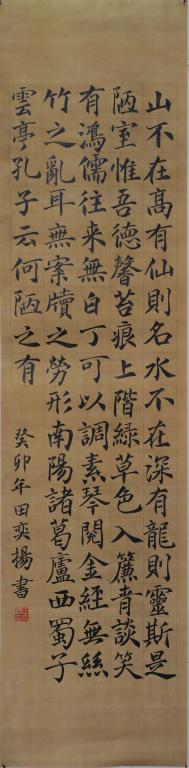 山不在髙有仙則名水不在深有龍則靈斯是
陋室惟吾德馨苔痕上階緑草色入簾青談笑
有鴻儒往来無白丁可以調素琴閱金經無絲
竹之亂耳無案牘之勞形南陽諸葛廬西蜀子
雲亭孔子云何陋之有
癸卯年田奕揚書